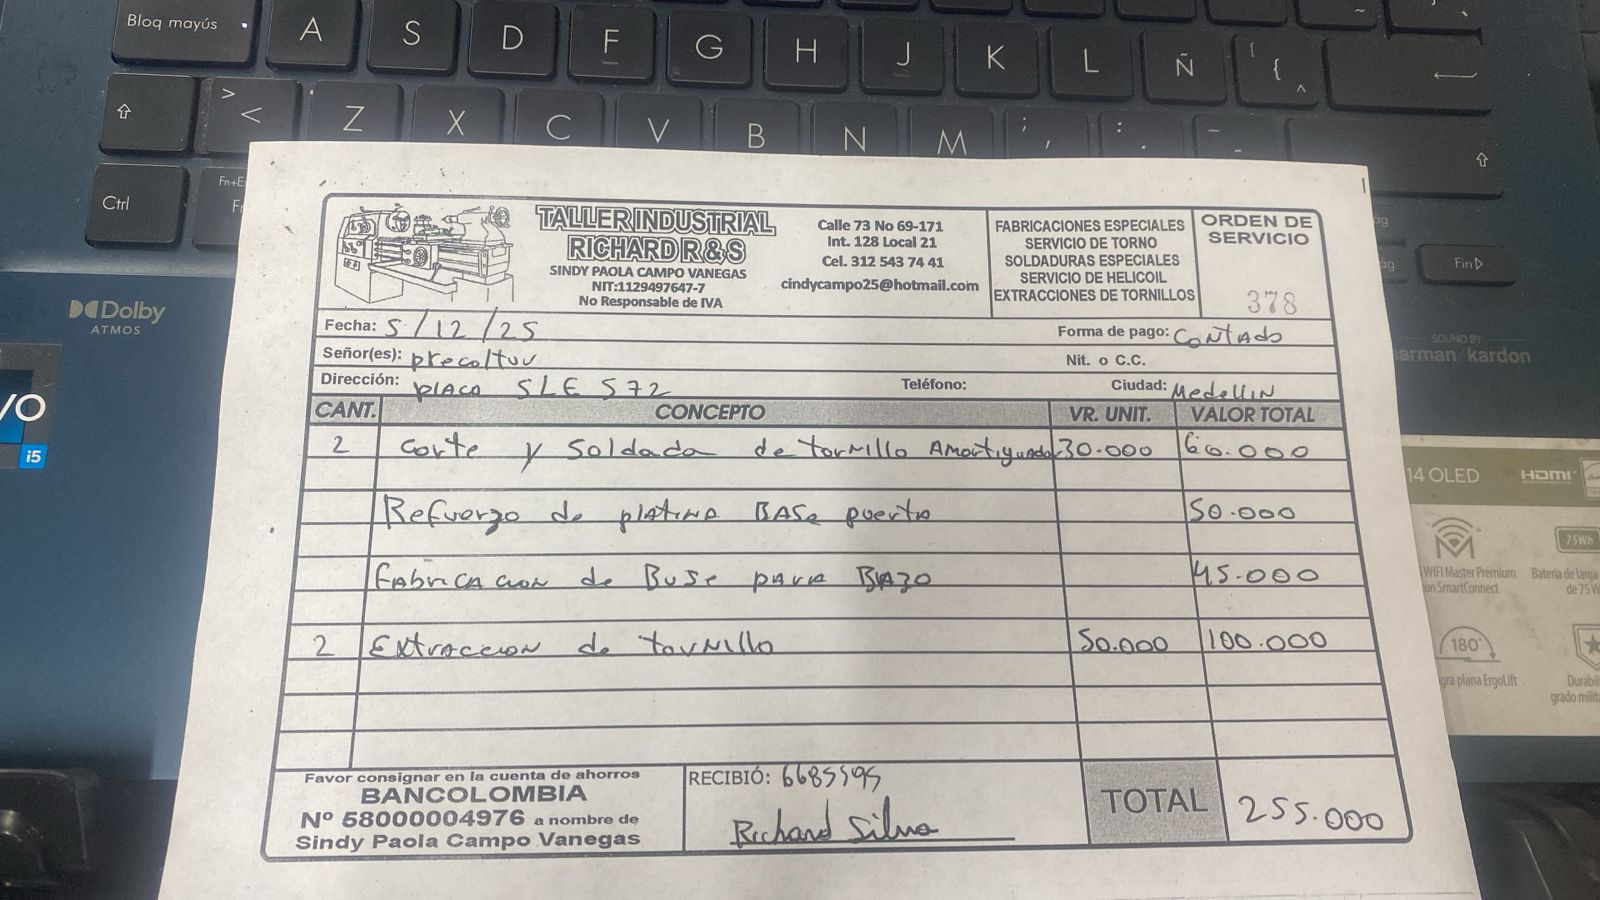 Bloq mayús A S D F G H J K L Ñ [ { ^
> < Z X C V B N M ; , : . - _
Ctrl
Fn+E
Fin
Dolby
ATMOS
i5
SOUND BY
harman/kardon
14 OLED HDMI
75Wh
WIFI Master Premium
on SmartConnect
Batería de larga
de 75 W
180°
gra plana ErgoLift
Durabili
grado milit
TALLER INDUSTRIAL
RICHARD R & S
SINDY PAOLA CAMPO VANEGAS
NIT:1129497647-7
No Responsable de IVA
Calle 73 No 69-171
Int. 128 Local 21
Cel. 312 543 74 41
cindycampo25@hotmail.com
FABRICACIONES ESPECIALES
SERVICIO DE TORNO
SOLDADURAS ESPECIALES
SERVICIO DE HELICOIL
EXTRACCIONES DE TORNILLOS
ORDEN DE
SERVICIO
378
Fecha: 5/12/25 Forma de pago: Contado
Señor(es): precoltur Nit. o C.C.
Dirección: placa SLE 572 Teléfono: Ciudad: Medellin
CANT. CONCEPTO VR. UNIT. VALOR TOTAL
2 Corte y Soldada de tornillo Amortiguador 30.000 60.000
Refuerzo de platina BASe puerta 50.000
Fabricacion de Buje para BRAZO 45.000
2 Extraccion de tornillo 50.000 100.000
Favor consignar en la cuenta de ahorros
BANCOLOMBIA
Nº 58000004976 a nombre de
Sindy Paola Campo Vanegas
RECIBIÓ: 6685595
Richard Silva
TOTAL 255.000